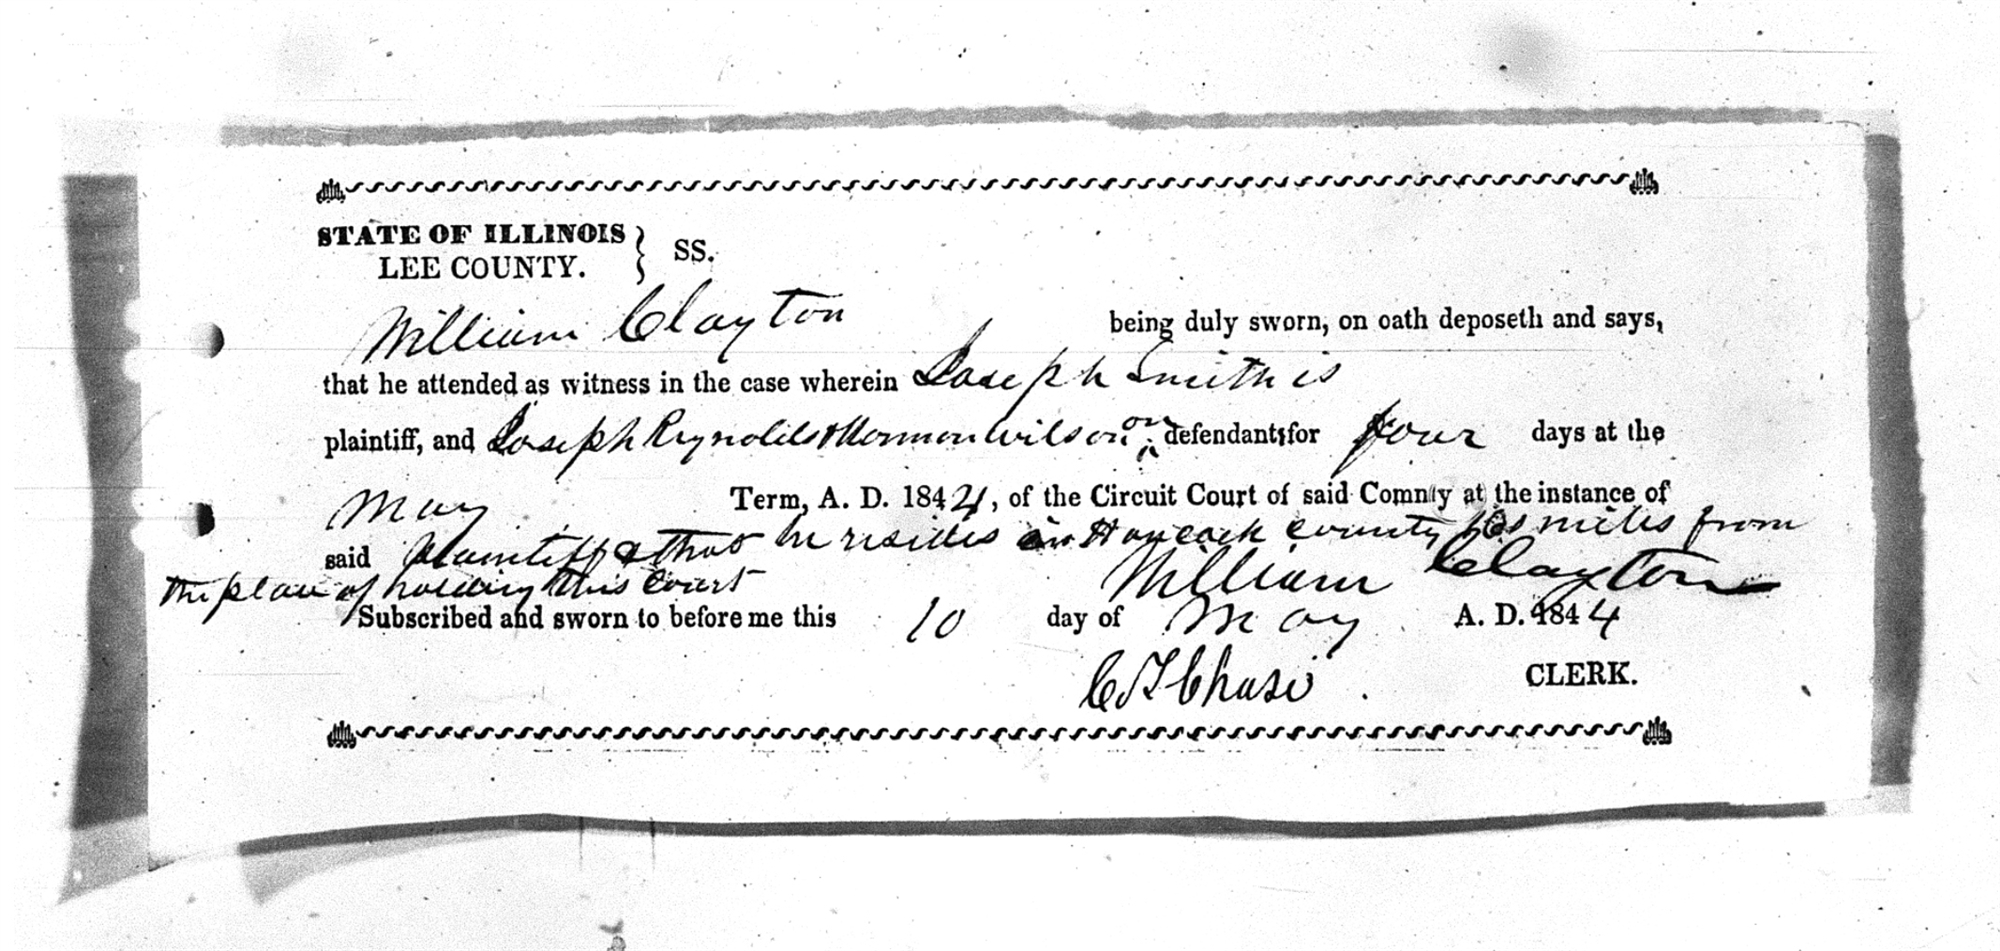 STATE OF ILLINOIS } SS.
LEE COUNTY.
William Clayton being duly sworn, on oath deposeth and says,
that he attended as witness in the case wherein Joseph Smith is
plaintiff, and Joseph Reynolds & Harmon Wilson defendants for four days at the
May Term, A. D. 1844, of the Circuit Court of said County at the instance of
said plaintiff & that he resides in Hancock county miles from
the place of holding this court
William Clayton
Subscribed and sworn to before me this 10 day of May A. D. 1844
C T Chase CLERK.